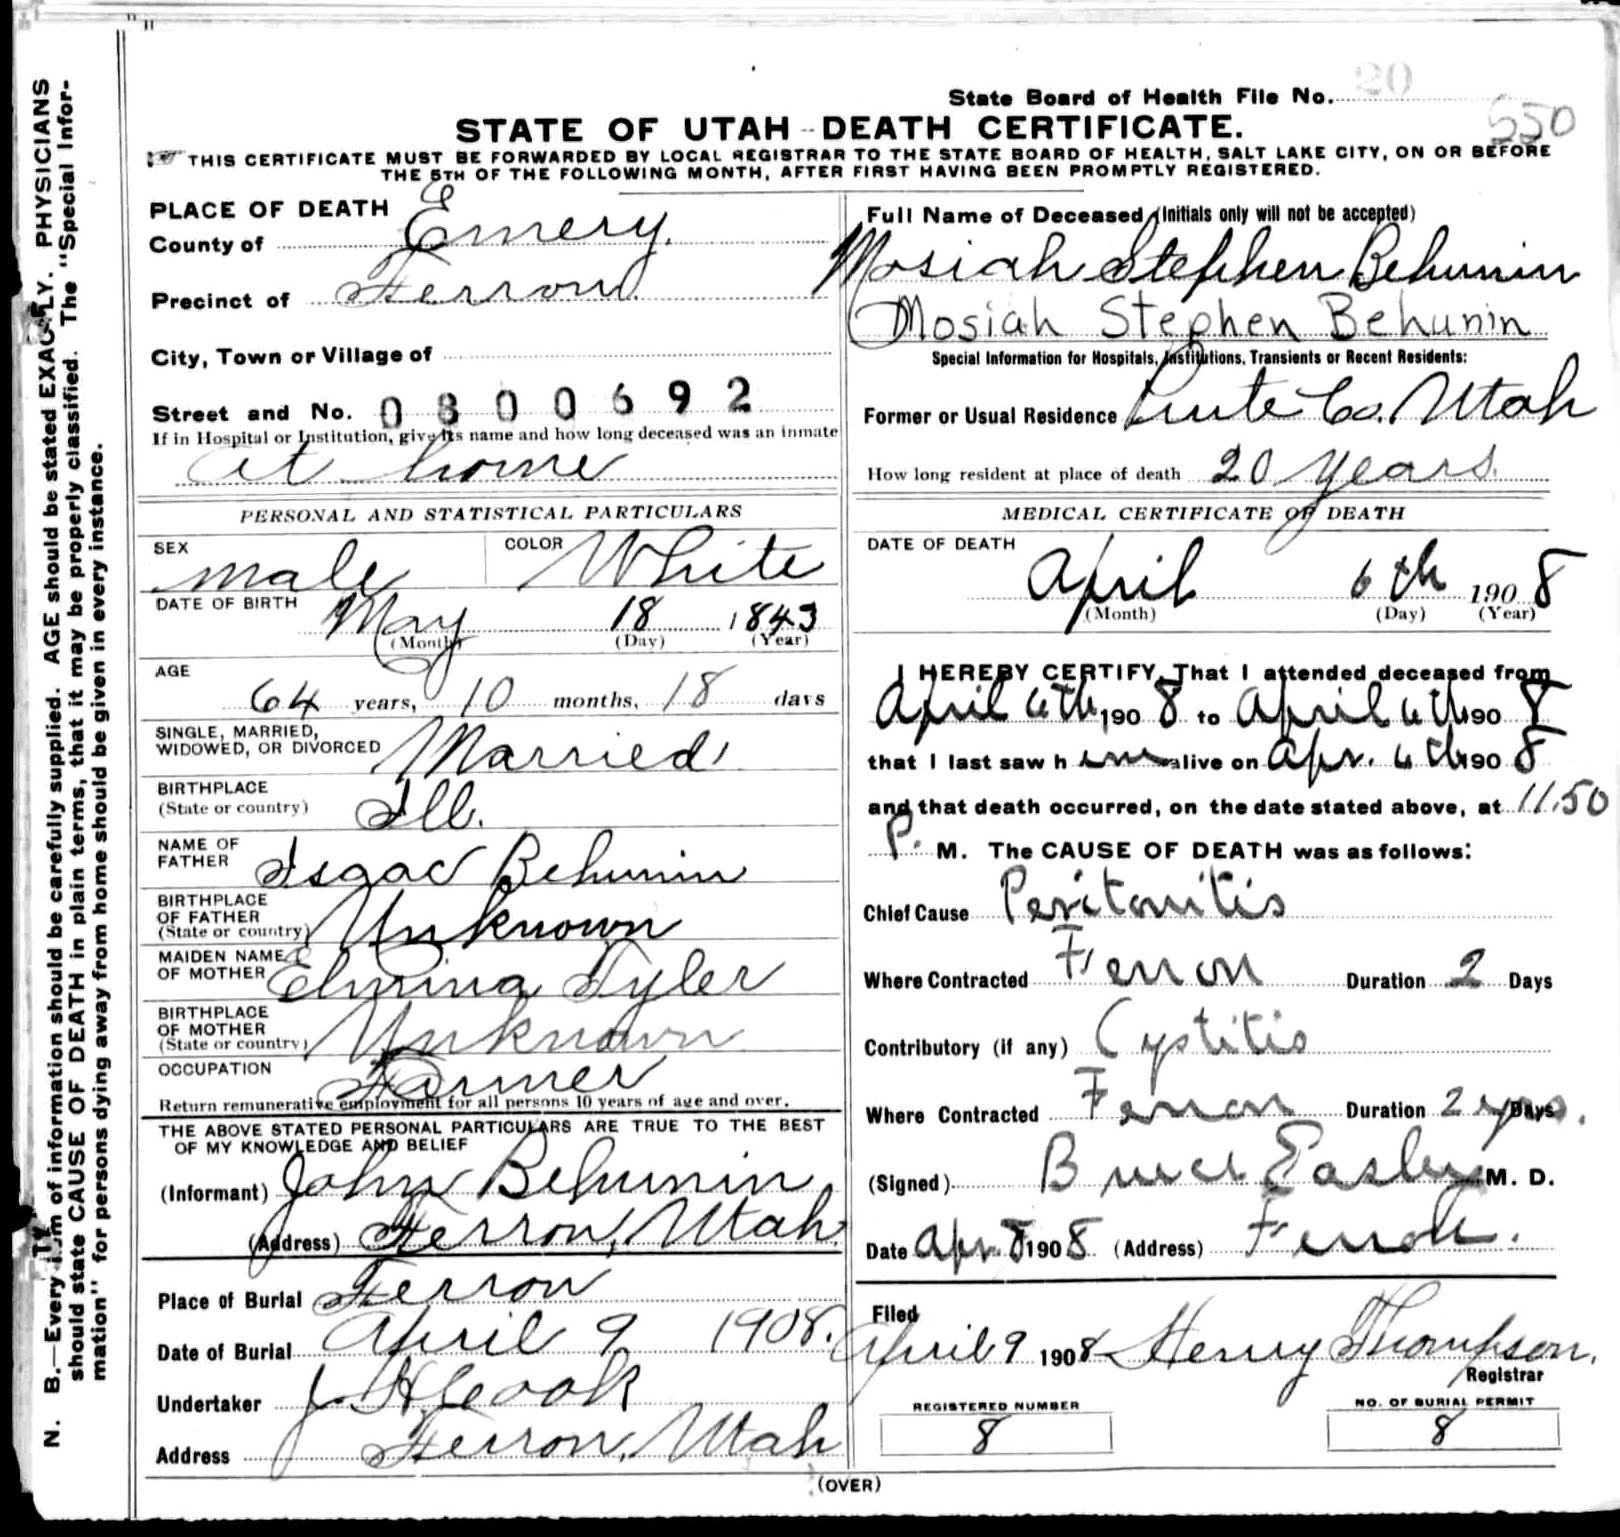 State Board of Health File No. 20
550
STATE OF UTAH - DEATH CERTIFICATE.
THIS CERTIFICATE MUST BE FORWARDED BY LOCAL REGISTRAR TO THE STATE BOARD OF HEALTH, SALT LAKE CITY, ON OR BEFORE
THE 5TH OF THE FOLLOWING MONTH, AFTER FIRST HAVING BEEN PROMPTLY REGISTERED.
N. B.—Every item of information should be carefully supplied. AGE should be stated EXACTLY. PHYSICIANS
should state CAUSE OF DEATH in plain terms, that it may be properly classified. The "Special Infor-
mation" for persons dying away from home should be given in every instance.
PLACE OF DEATH
County of Emery.
Precinct of Ferron
City, Town or Village of
Street and No. 0800692
If in Hospital or Institution, give its name and how long deceased was an inmate
at home
PERSONAL AND STATISTICAL PARTICULARS
SEX male COLOR White
DATE OF BIRTH May 18 1843
(Month) (Day) (Year)
AGE
64 years, 10 months, 18 days
SINGLE, MARRIED,
WIDOWED, OR DIVORCED Married
BIRTHPLACE
(State or country) Ill.
NAME OF
FATHER Isaac Behunin
BIRTHPLACE
OF FATHER
(State or country) Unknown
MAIDEN NAME
OF MOTHER Elmina Tyler
BIRTHPLACE
OF MOTHER
(State or country) Unknown
OCCUPATION Farmer
Return remunerative employment for all persons 10 years of age and over.
THE ABOVE STATED PERSONAL PARTICULARS ARE TRUE TO THE BEST
OF MY KNOWLEDGE AND BELIEF
(Informant) John Behunin
(Address) Ferron, Utah
Place of Burial Ferron
Date of Burial April 9 1908.
Undertaker J. H. Cook
Address Ferron, Utah
Full Name of Deceased (Initials only will not be accepted)
Mosiah Stephen Behunin
Mosiah Stephen Behunin
Special Information for Hospitals, Institutions, Transients or Recent Residents:
Former or Usual Residence Piute Co. Utah
How long resident at place of death 20 years.
MEDICAL CERTIFICATE OF DEATH
DATE OF DEATH
April 6th 1908
(Month) (Day) (Year)
I HEREBY CERTIFY, That I attended deceased from
April 6th 1908 to April 6th 1908
that I last saw him alive on Apr. 6th 1908
and that death occurred, on the date stated above, at 11.50
P. M. The CAUSE OF DEATH was as follows:
Chief Cause Peritonitis
Where Contracted Ferron Duration 2 Days
Contributory (if any) Cystitis
Where Contracted Ferron Duration 2 yrs. Days
(Signed) Bruce Easley M. D.
Date Apr. 8 1908 (Address) Ferron.
Filed
April 9 1908 Henry Thompson.
Registrar
REGISTERED NUMBER
8
NO. OF BURIAL PERMIT
8
(OVER)